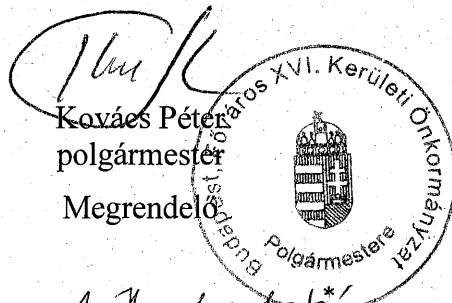 Kovács Péter
polgármester
Megrendelő
Budapest, Főváros XVI. Kerületi Önkormányzat
Polgármestere